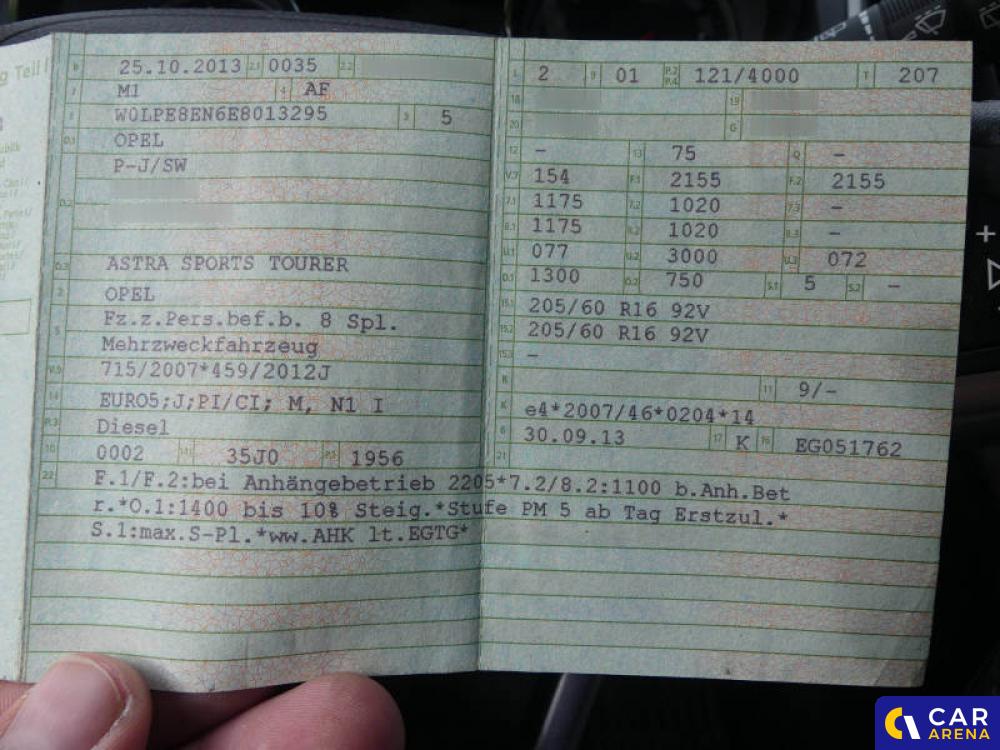 g Teil I
B 25.10.2013 2.1 0035 2.2
J M1 4 AF
E W0LPE8EN6E8013295 3 5
D.1 OPEL
P-J/SW
D.2
D.3 ASTRA SPORTS TOURER
2 OPEL
5 Fz.z.Pers.bef.b. 8 Spl.
Mehrzweckfahrzeug
V.9 715/2007*459/2012J
14 EURO5;J;PI/CI; M, N1 I
P.3 Diesel
10 0002 14.1 35J0 P.1 1956
22 F.1/F.2:bei Anhängebetrieb 2205*7.2/8.2:1100 b.Anh.Bet
r.*O.1:1400 bis 10% Steig.*Stufe PM 5 ab Tag Erstzul.*
S.1:max.S-Pl.*ww.AHK lt.EGTG*
L 2 9 01 P.2 P.4 121/4000 T 207
18 19
20 G
12 - 13 75 Q -
V.7 154 F.1 2155 F.2 2155
7.1 1175 7.2 1020 7.3 -
8.1 1175 8.2 1020 8.3 -
U.1 077 U.2 3000 U.3 072
O.1 1300 O.2 750 S.1 5 S.2 -
15.1 205/60 R16 92V
15.2 205/60 R16 92V
15.3 -
R 11 9/-
K e4*2007/46*0204*14
6 30.09.13 17 K 16 EG051762
21
CAR
ARENA